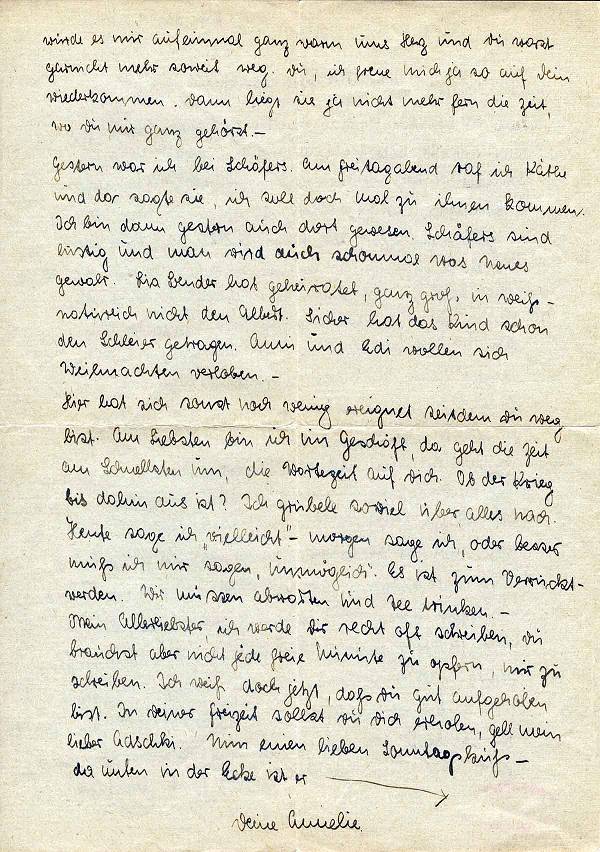 würde es mir aufeinmal ganz warm ums Herz und Du warst
garnicht mehr soweit weg. Du, ich freue mich ja so auf Dein
Wiederkommen. Dann liegt sie ja nicht mehr fern die Zeit,
wo Du mir ganz gehörst.–
Gestern war ich bei Schäfers. Am Freitagabend traf ich Käthe
und da sagte sie, ich soll doch mal zu ihnen kommen.
Ich bin dann gestern auch dort gewesen. Schäfers sind
lustig und man wird auch schonmal was Neues
gewahr. Lia Bender hat geheiratet, ganz groß, in weiß–
natürlich nicht den Albert. Sicher hat das Kind schon
den Schleier getragen. Anni und Edi wollen sich
Weihnachten verloben.–
Hier hat sich sonst noch wenig ereignet seitdem Du weg
bist. Am Liebsten bin ich im Geschäft, da geht die Zeit
am Schnellsten um, die Wartezeit auf Dich. Ob der Krieg
bis dahin aus ist? Ich grübele soviel über alles nach.
Heute sage ich „vielleicht“– morgen sage ich, oder besser
muß ich mir sagen, „unmöglich“. Es ist zum Verrückt-
werden. Wir müssen abwarten und Tee trinken.–
Mein Allerliebster, ich werde Dir recht oft schreiben, Du
brauchst aber nicht jede freie Minute zu opfern, mir zu
schreiben. Ich weiß doch jetzt, daß Du gut aufgehoben
bist. In Deiner Freizeit sollst Du Dich erholen, gell mein
lieber Adschki. Nun einen lieben Sonntagskuß–
da unten in der Ecke ist er
Deine Annelie.